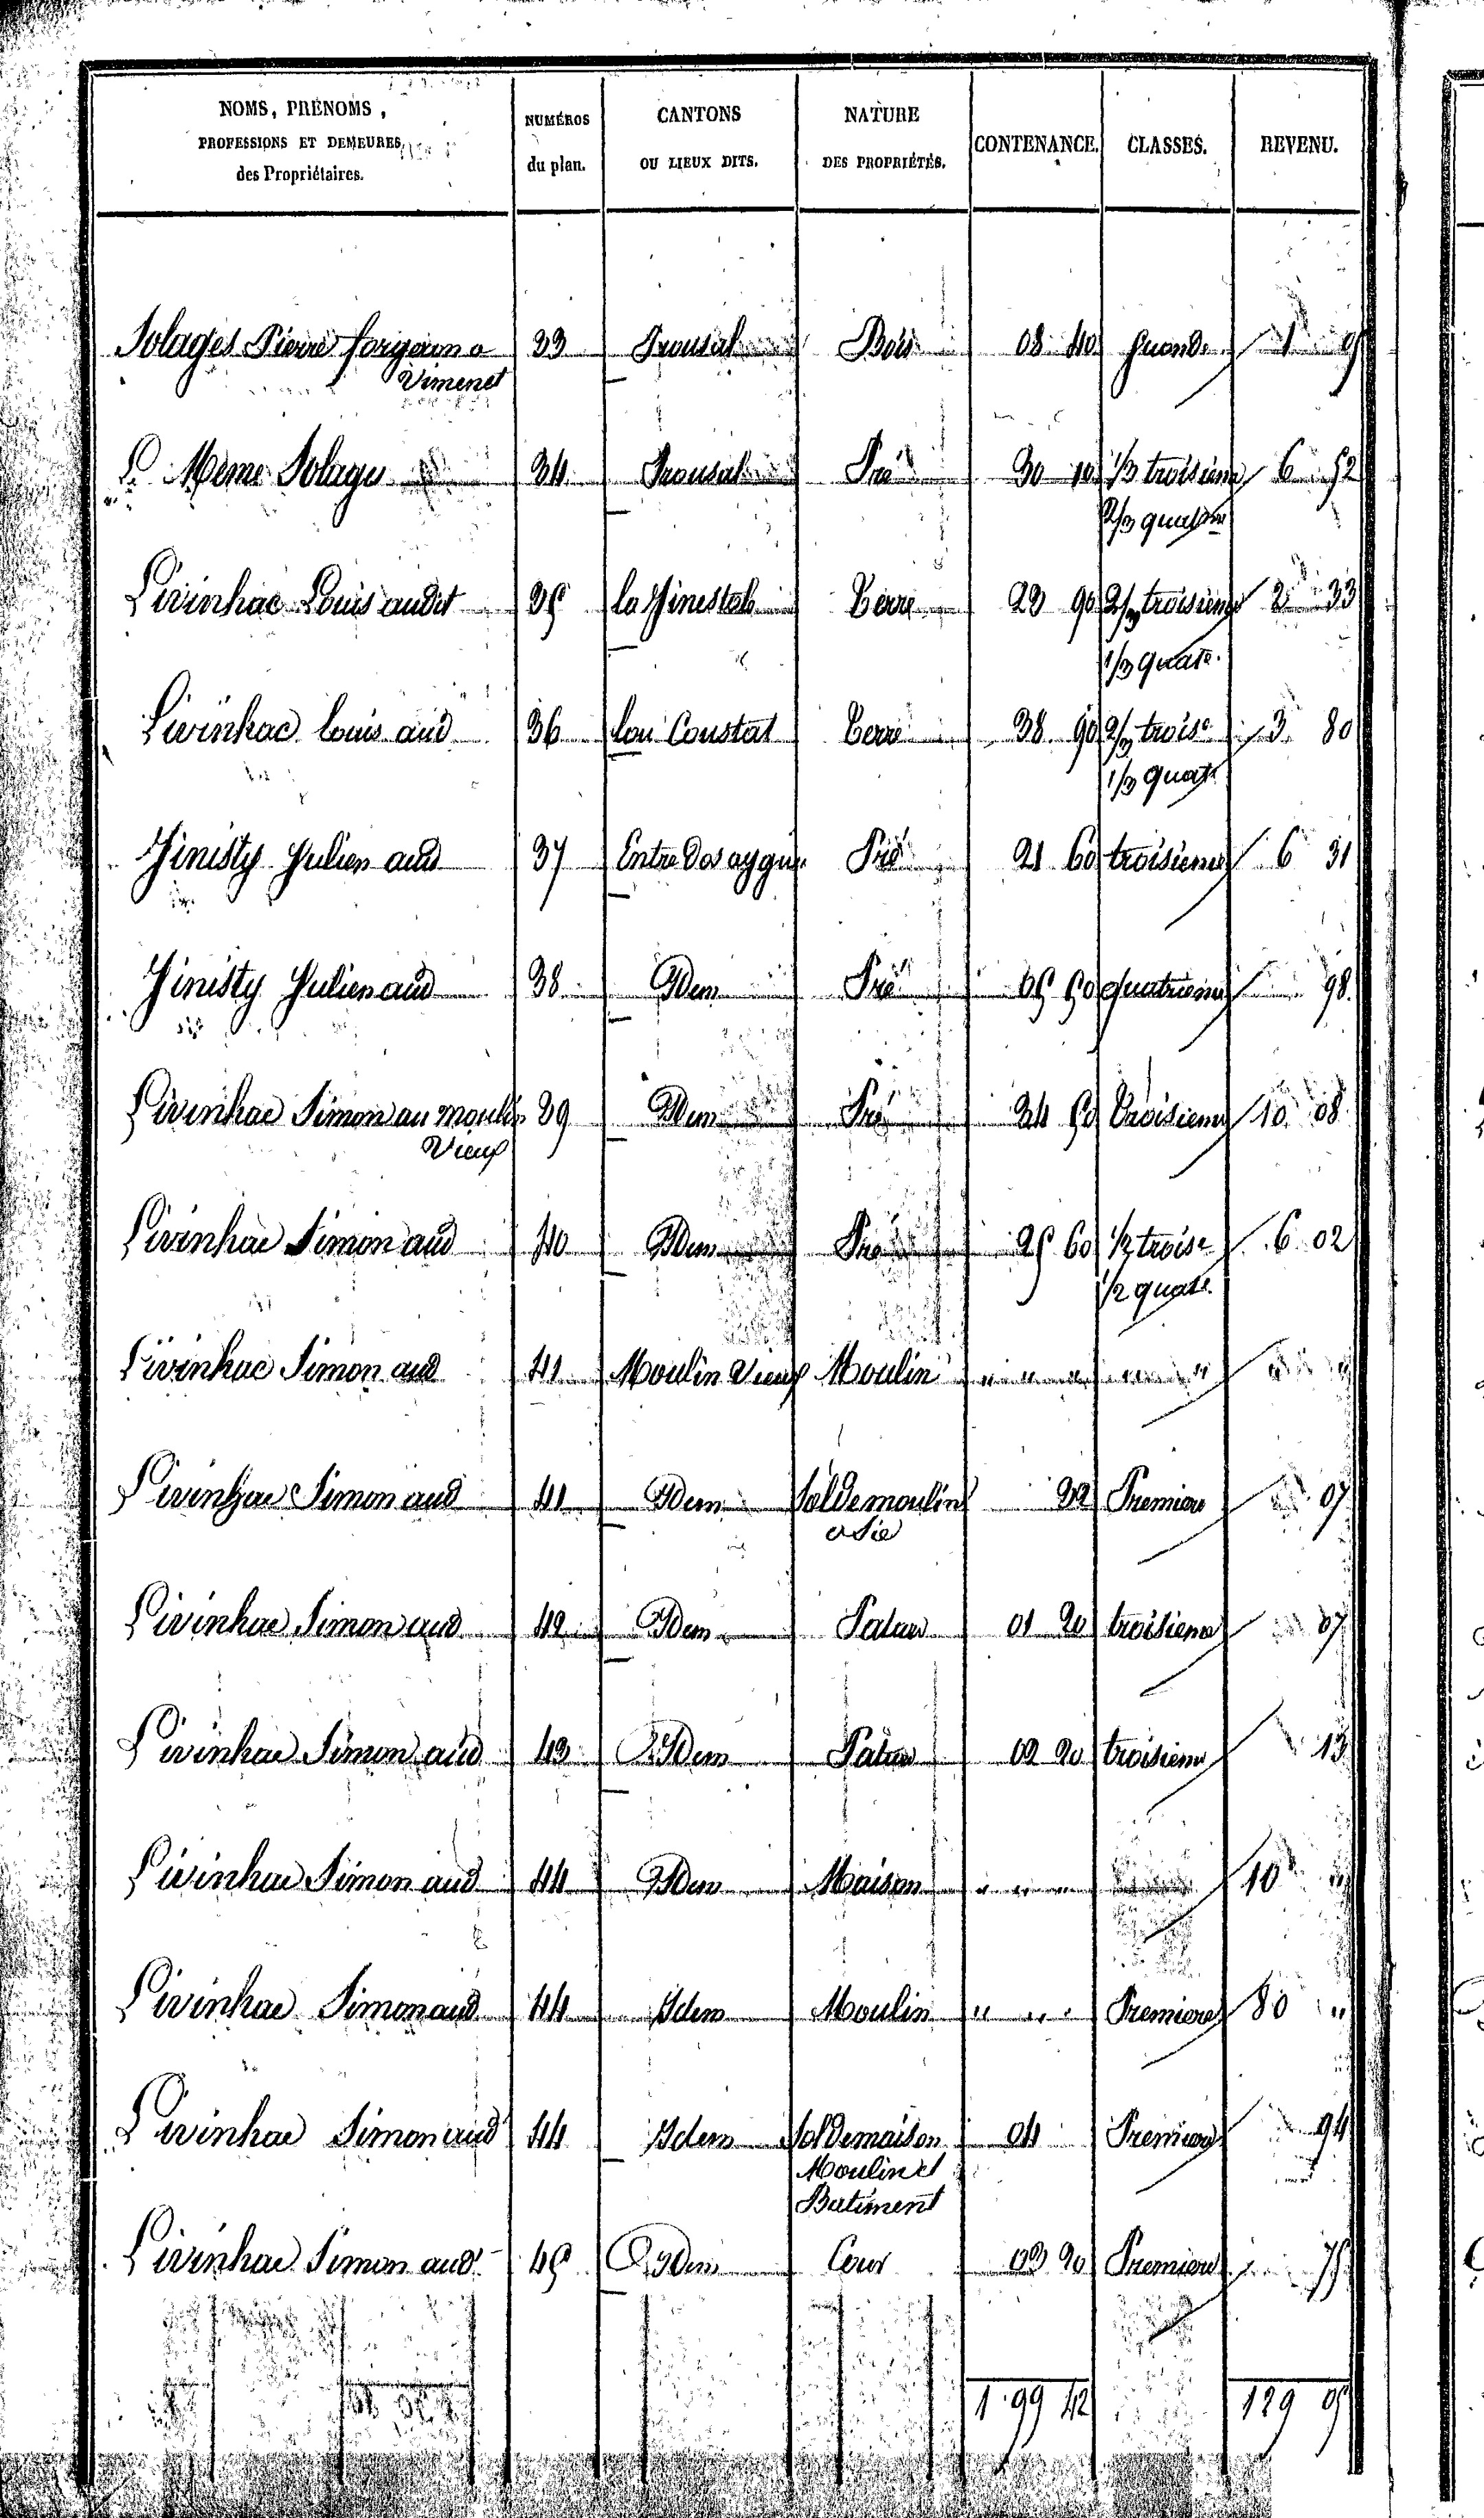 NOMS, PRÉNOMS, PROFESSIONS ET DEMEURES, des Propriétaires. | NUMÉROS du plan. | CANTONS OU LIEUX DITS. | NATURE DES PROPRIÉTÉS. | CONTENANCE. | CLASSES. | REVENU.
Solages Pierre forgeron a | 33 | Trousal | Bois | 08 40 | seconde | 1 05
Vimenet
Le Meme Solages | 34 | Trousal | Pré | 30 10 | 1/3 troisieme | 6 52
2/3 quatre
Livinhac Louis audit | 35 | la Ginestal | Terre | 23 90 | 2/3 troisieme | 2 33
1/3 quatr.
Livinhac louis aud | 36 | lou Coustal | Terre | 38 90 | 2/3 troise | 3 80
1/3 quatr
Ginisty Julien aud | 37 | Entre dos aygues | Pré | 21 60 | troisieme | 6 31
Ginisty Julien aud | 38 | Idem | Pré | 05 50 | quatrieme | 98
Livinhac Simon au moulin | 39 | Idem | Pré | 34 50 | Troisieme | 10 08
Vieux
Livinhac Simon aud | 40 | Idem | Pré | 25 60 | 1/2 troise | 6 02
1/2 quatr.
Livinhac Simon aud | 41 | Moulin Vieux | Moulin | " " " | " " | " "
Livinhac Simon aud | 41 | Idem | Sol de moulin | 32 | Premiere | 07
a Sie
Livinhac Simon aud | 42 | Idem | Pature | 01 20 | troisieme | 07
Livinhac Simon aud | 43 | Idem | Pature | 02 20 | troisieme | 13
Livinhac Simon aud | 44 | Idem | Maison | " " " | 10 "
Livinhac Simon aud | 44 | Idem | Moulin | " " " | Premiere | 80 "
Livinhac Simon aud | 44 | Idem | Sol de maison | 04 | Premiere | 94
Moulin et
Batiment
Livinhac Simon aud | 45 | Idem | Cour | 03 20 | Premiere | 75
1 99 42 | 129 05